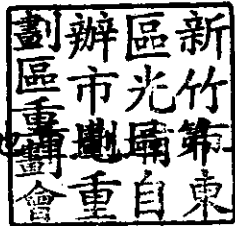 新竹東
區光自
辦市重
劃區重劃會